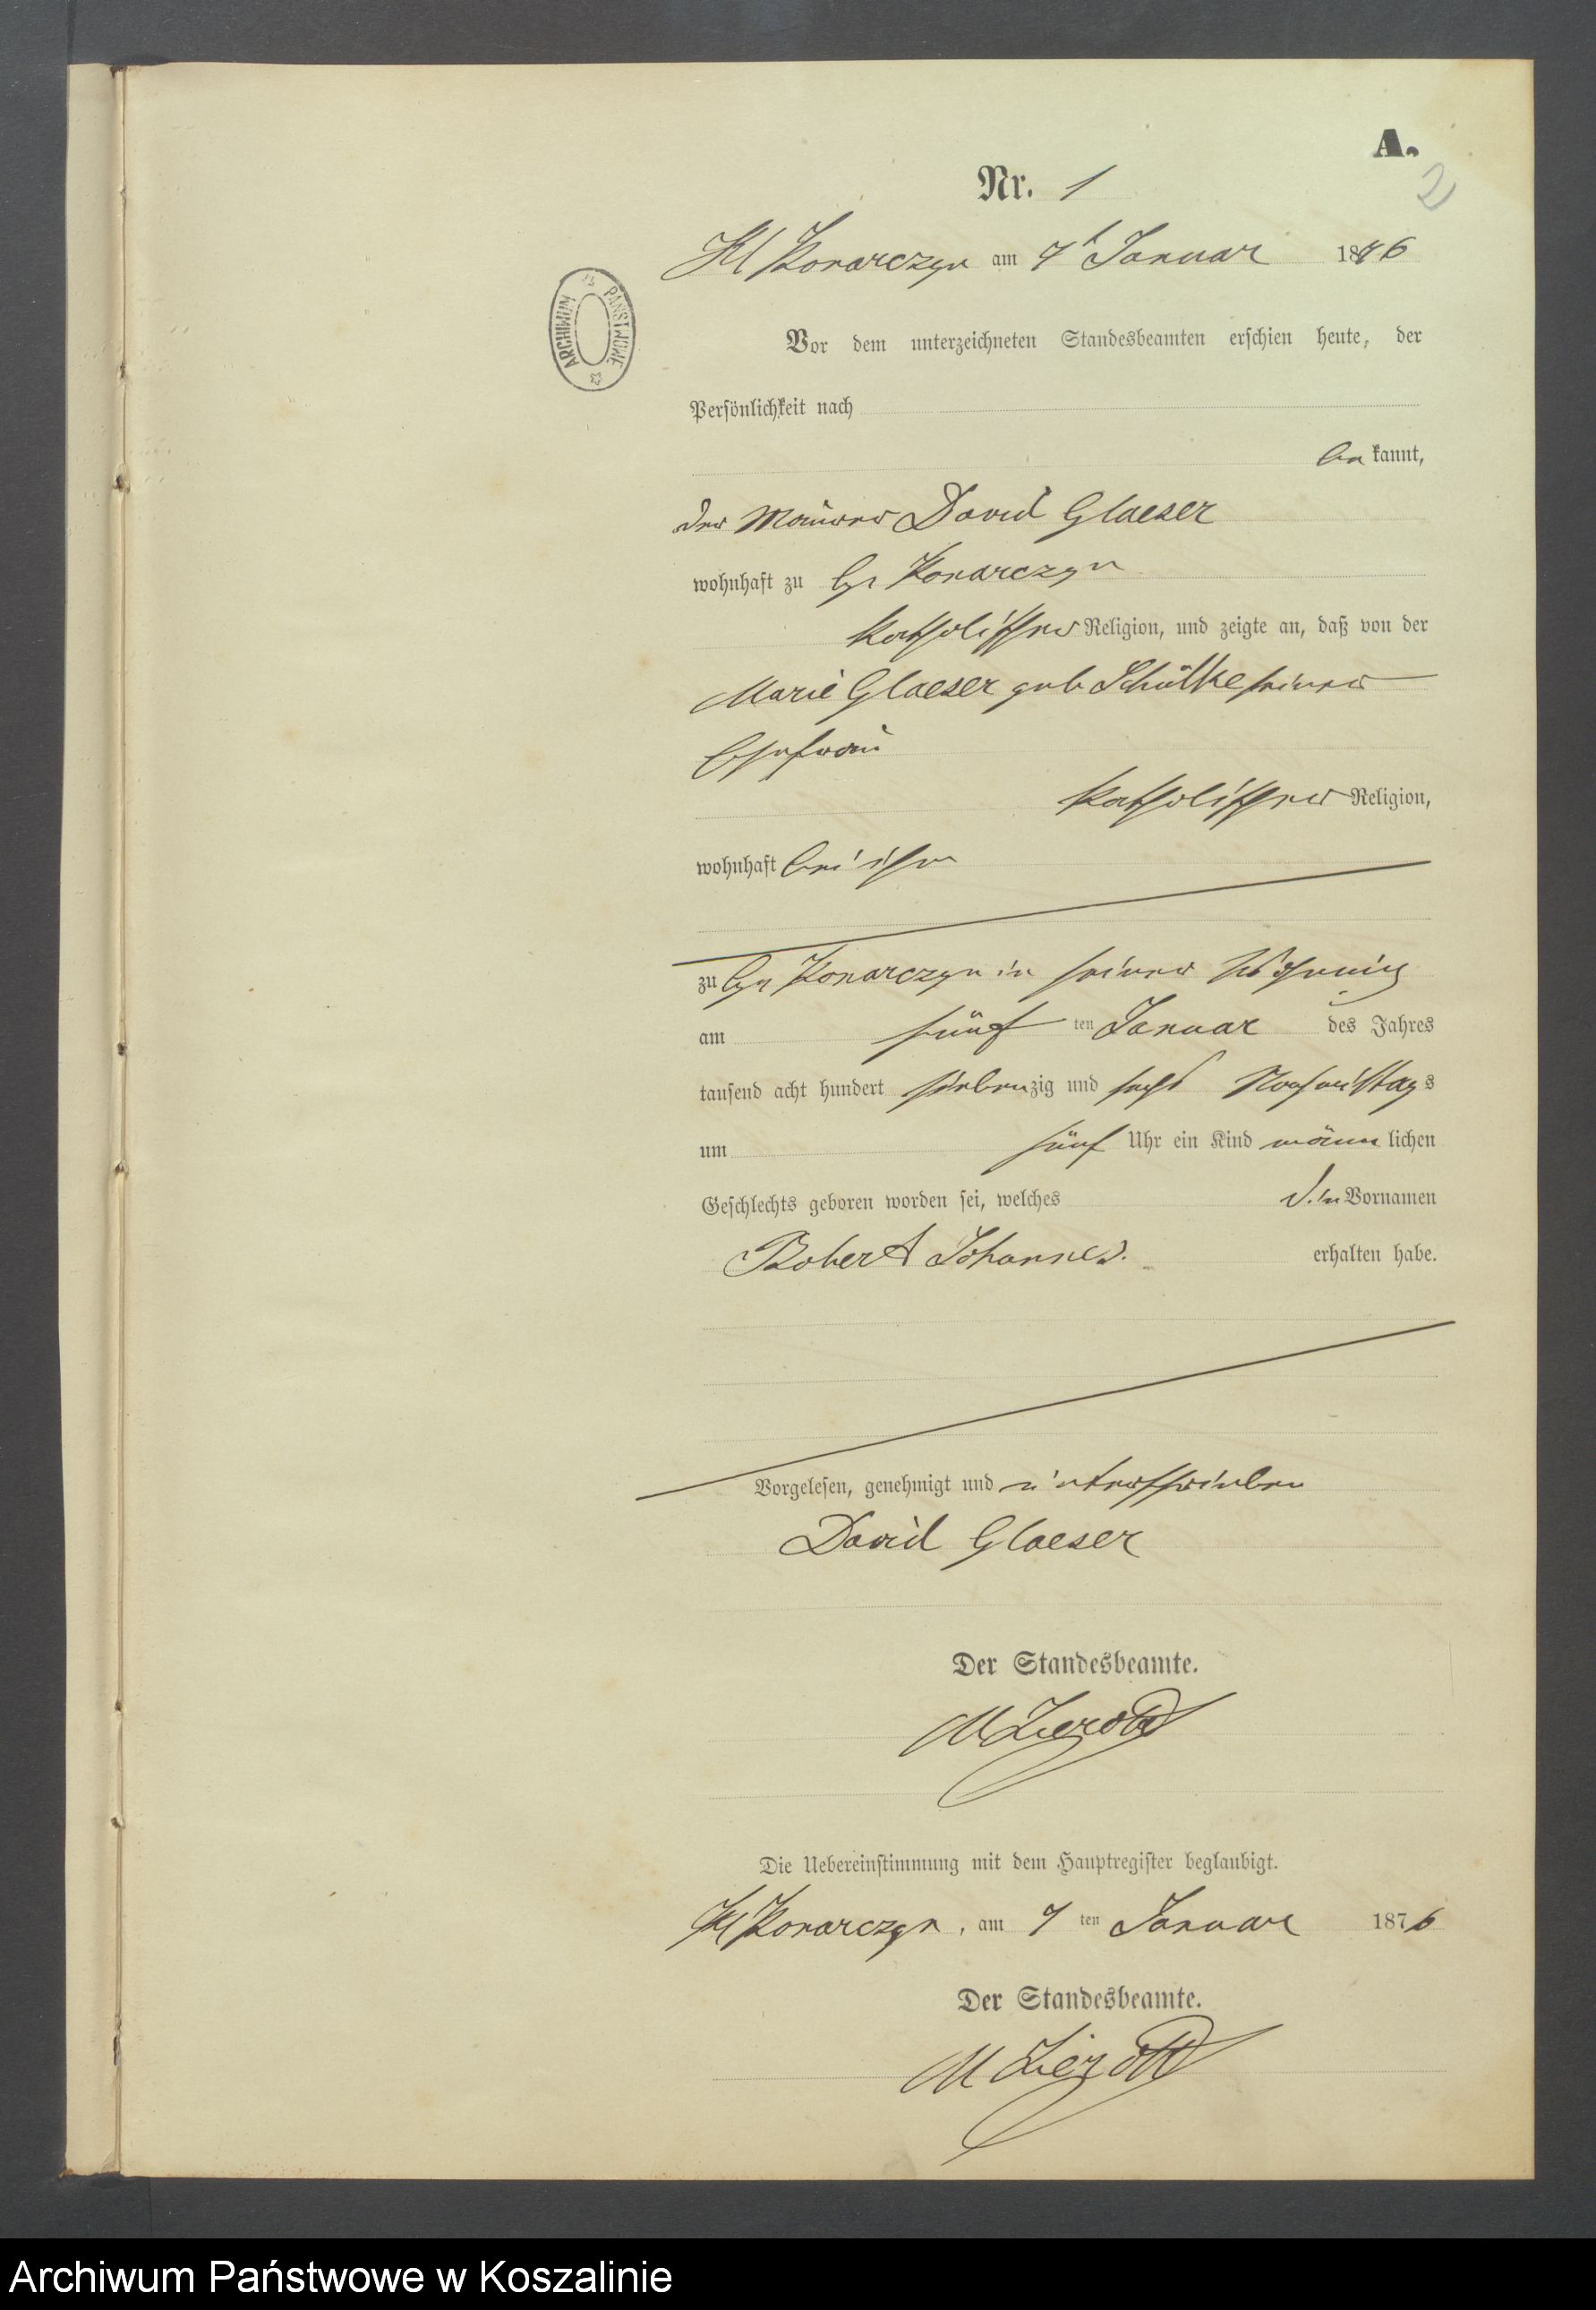 A.
2
Nr. 1
Kl Konarczyn am 7t Januar 1876
Vor dem unterzeichneten Standesbeamten erschien heute, der
Persönlichkeit nach
be kannt,
der Maurer David Glaeser
wohnhaft zu Gr Konarczyn
katholischer Religion, und zeigte an, daß von der
Marie Glaeser geb Schülke seiner
Ehefrau
katholischer Religion,
wohnhaft bei ihm
zu Gr Konarczyn in seiner Wohnung
am fünf ten Januar des Jahres
tausend acht hundert siebenzig und sechs Nachmittags
um fünf Uhr ein Kind männ lichen
Geschlechts geboren worden sei, welches die Vornamen
Robert Johannes. erhalten habe.
Vorgelesen, genehmigt und unterschrieben
David Glaeser
Der Standesbeamte.
M
Die Uebereinstimmung mit dem Hauptregister beglaubigt.
Kl Konarczyn, am 7 ten Januar 1876
Der Standesbeamte.
M
ARCHIWUM PAŃSTWOWE
Archiwum Państwowe w Koszalinie